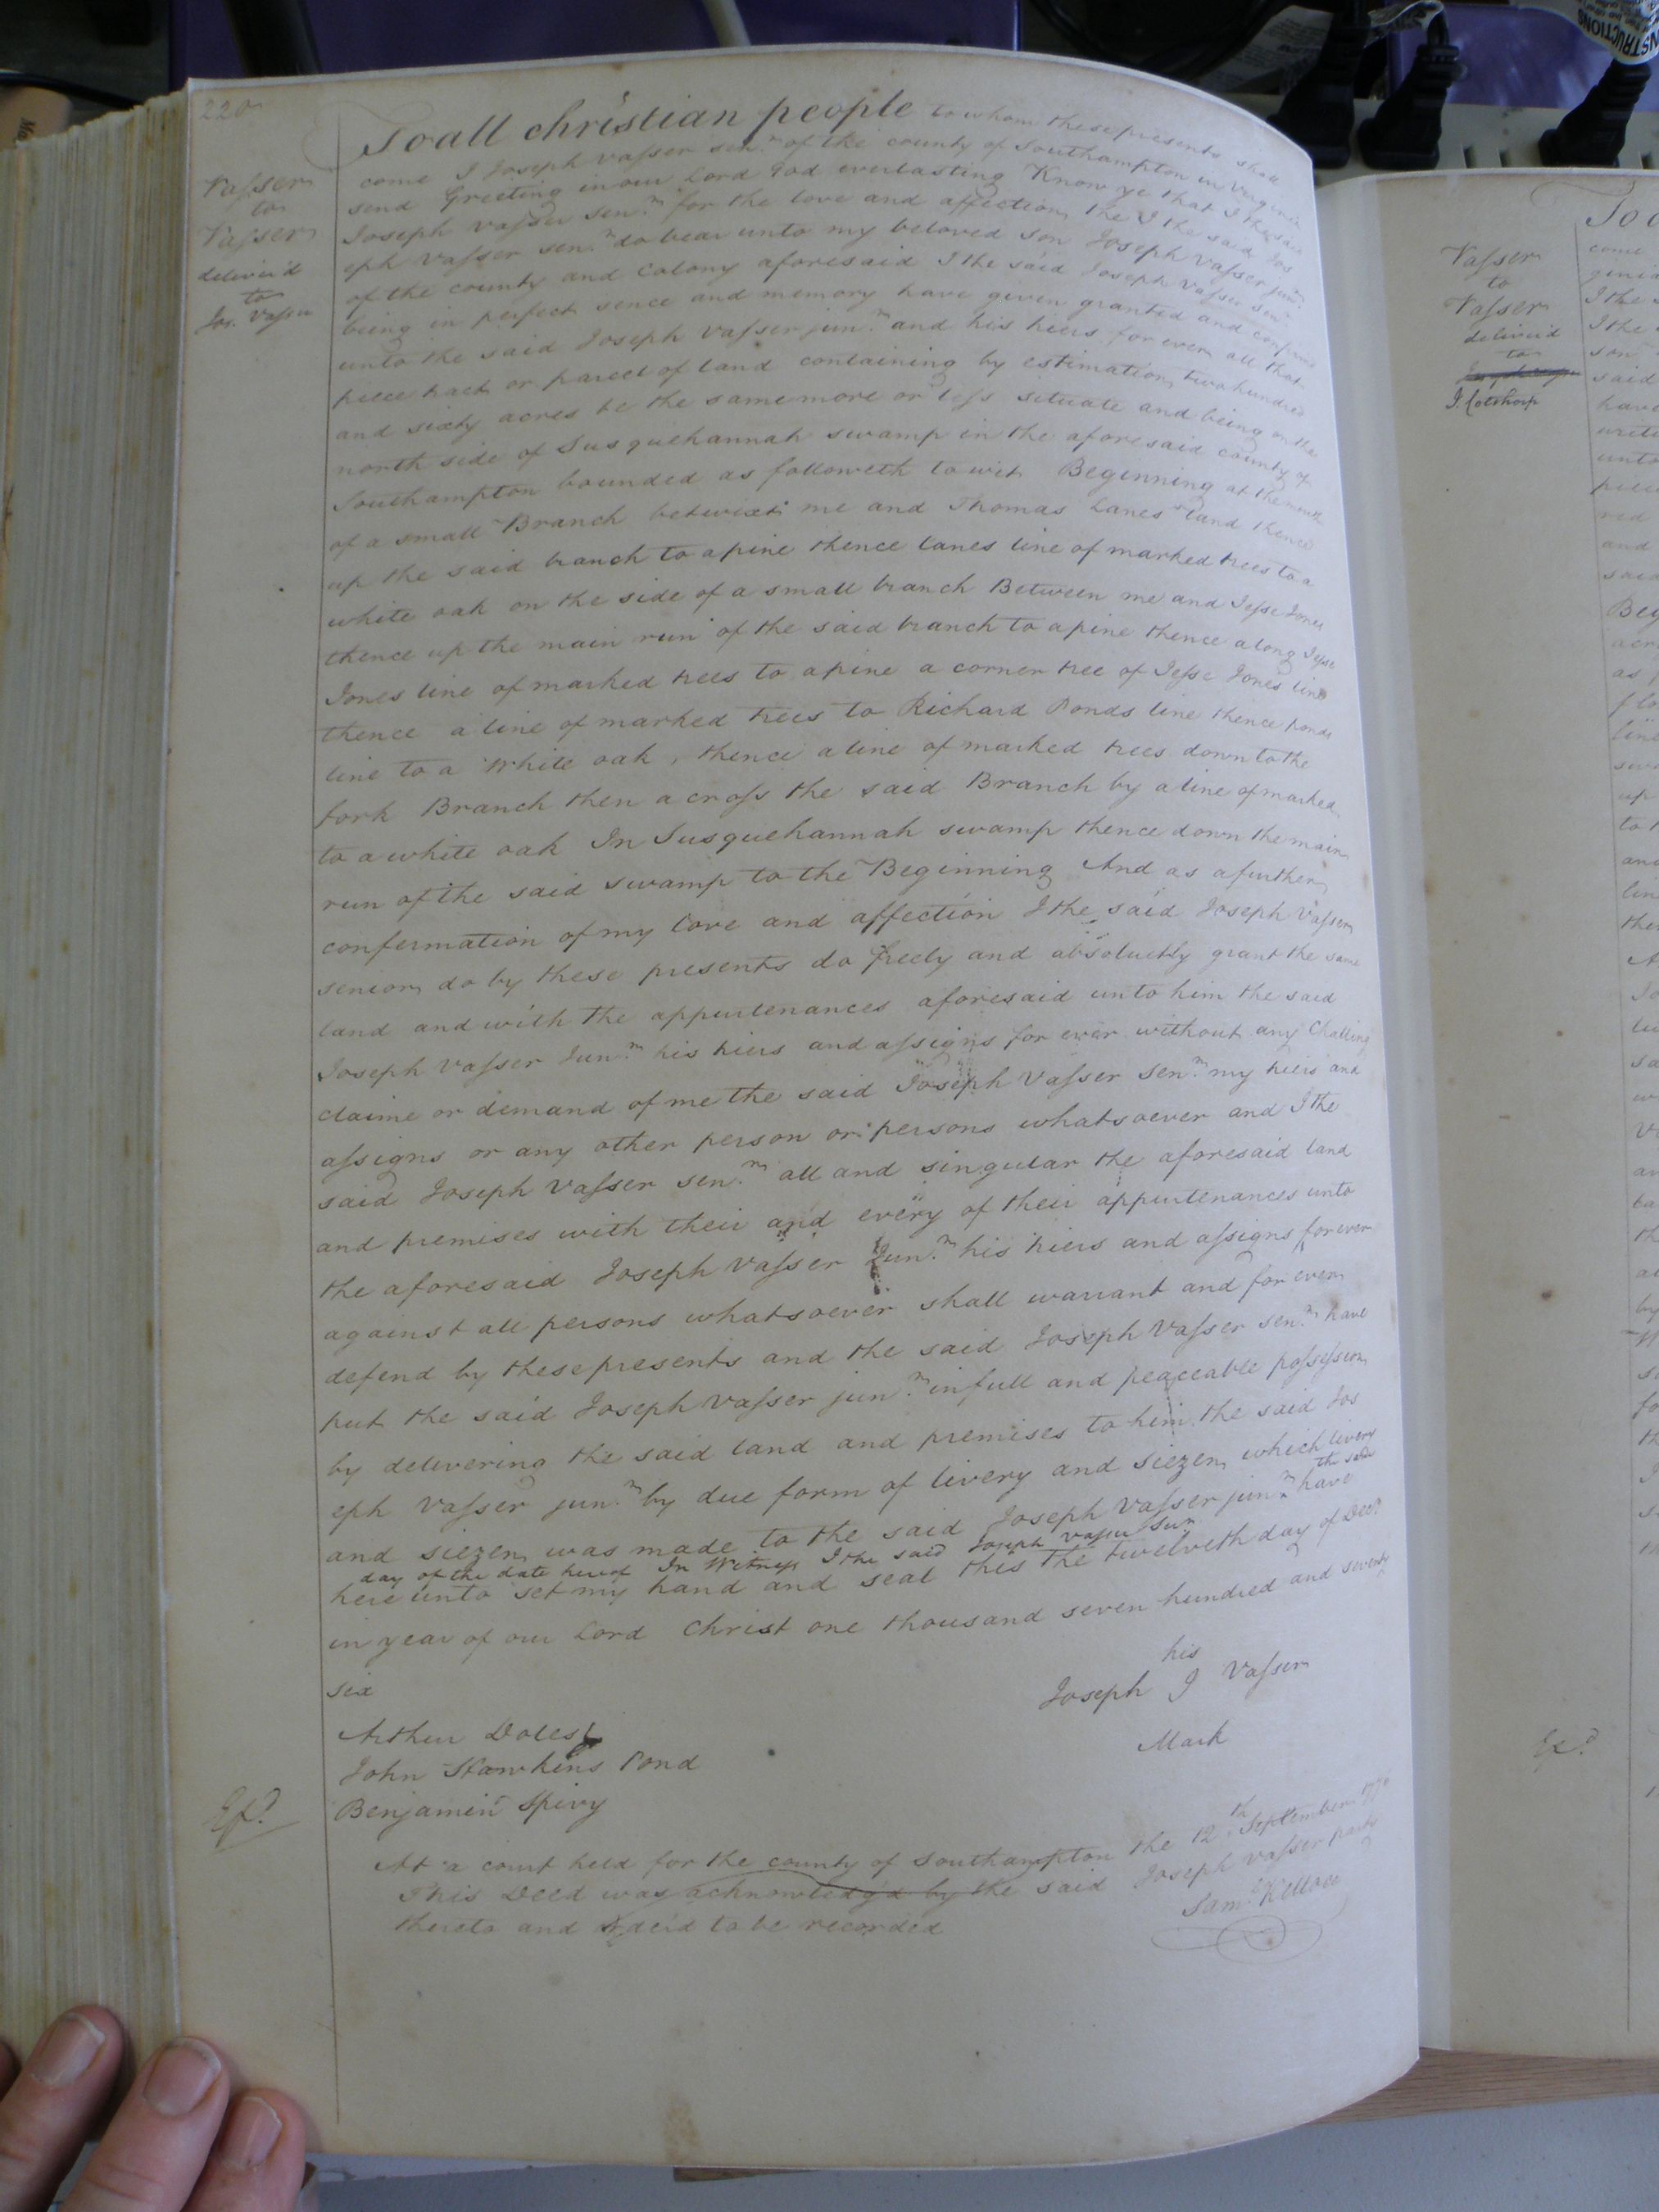 220
Vaſser
to
Vaſser
deliver'd
to
Jos. Vaſser
To all christian people to whom these presents shall
come I Joseph Vaſser senr. of the county of Southampton in Virginia
send Greeting in our Lord God everlasting Know ye that I the said
Joseph Vaſser senr. for the love and affection the I the said Jos
eph Vaſser senr. do bear unto my beloved son Joseph Vaſser junr.
of the county and Colony aforesaid I the said Joseph Vaſser senr.
being in perfect sence and memory have given granted and confirmed
unto the said Joseph Vaſser junr. and his hiers for ever all that
piece tract or parcel of land containing by estimation two hundred
and sixty acres be the same more or leſs situate and being on the
north side of Susquehannah swamp in the aforesaid county of
Southampton bounded as followeth to wit Beginning at the mouth
of a small Branch betwixt me and Thomas Lanes land thence
up the said branch to a pine thence lanes line of marked trees to a
white oak on the side of a small branch Between me and Jeſse Jones
thence up the main run of the said branch to a pine thence along Jeſse
Jones line of marked trees to a pine a corner tree of Jeſse Jones line
thence a line of marked trees to Richard Ponds line thence ponds
line to a White oak, thence a line of marked trees down to the
fork Branch then a croſs the said Branch by a line of marked
to a white oak In Susquehannah swamp thence down the main
run of the said swamp to the Beginning And as a further
confermation of my love and affection I the said Joseph Vaſser
senior do by these presents do freely and absolutly grant the same
land and with the appurtenances aforesaid unto him the said
Joseph Vaſser Junr. his hiers and aſsigns for ever without any Challing
claime or demand of me the said Joseph Vaſser Senr. my hiers and
aſsigns or any other person or persons whatsoever and I the
said Joseph Vaſser senr. all and singular the aforesaid land
and premises with their and every of their appurtenances unto
the aforesaid Joseph Vaſser Junr. his hiers and aſsigns for ever
against all persons whatsoever shall warrant and for ever
defend by these presents and the said Joseph Vaſser senr. have
put the said Joseph Vaſser junr. in full and peaceable poſseſsion
by delivering the said land and premises to him the said Jos
eph Vaſser junr. by due form of livery and siezen which livery
and siezen was made to the said Joseph Vaſser junr. the said have
day of the date hereof In Witneſs I the said Joseph Vaſser Sun
here unto set my hand and seal this the twelveth day of Decr.
in year of our Lord Christ one thousand seven hundred and seventy
six
his
Joseph J Vaſser
Mark
Arthur Doles
John Hawkins Pond
Benjamin Spivy
Exd.
At a court held for the county of Southampton the 12th September 1776
This Deed was acknowledg'd by the said Joseph Vaſser party
thereto and order'd to be recorded
Saml. Kello
Vaſser
to
Vaſser
deliver'd
to
come
I the
I the
son
said
have
unto
piece
red
and
said
Beg
as
line
up
to
and
Exd.